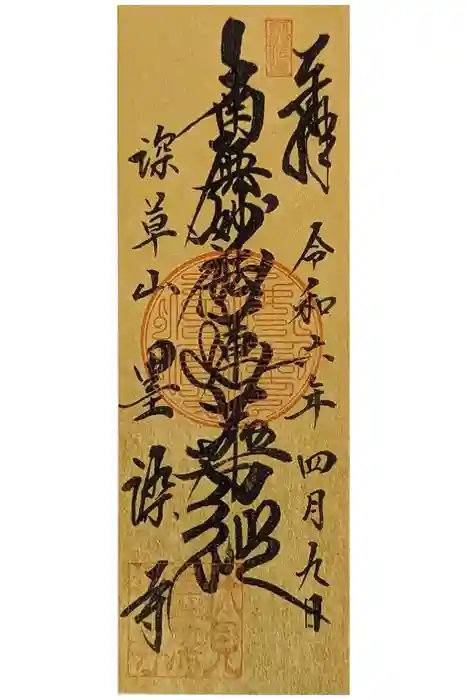 奉拝
令和六年四月九日
南無妙法蓮華経
深草山 墨染寺